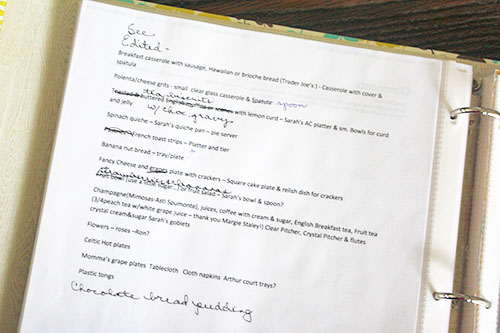 See
Edited-
Breakfast casserole with sausage, Hawaiian or brioche bread (Trader Joe's ) - Casserole with cover &
spatula
Polenta/cheese grits - small clear glass casserole & Spatula spoon
tea biscuits
buttered with lemon curd – Sarah's AC platter & sm. Bowls for curd
and jelly w/ choc. gravy
Spinach quiche – Sarah's quiche pan – pie server
French toast strips – Platter and tier
Banana nut bread – tray/plate
Fancy Cheese and grapes plate with crackers – Square cake plate & relish dish for crackers
strawberries & bananas
Fruit bowl (use a little sugar...) or fruit salad – Sarah's bowl & spoon?
Champagne(Mimosas-Asti Spumonte), juices, coffee with cream & sugar, English Breakfast tea, Fruit tea
(3/4peach tea w/white grape juice – thank you Margie Staley!) Clear Pitcher, Crystal Pitcher & flutes
crystal cream&sugar Sarah's goblets
Flowers – roses –Ron?
Celtic Hot plates
Momma's grape plates Tablecloth Cloth napkins Arthur court trays?
Plastic tongs
Chocolate bread pudding